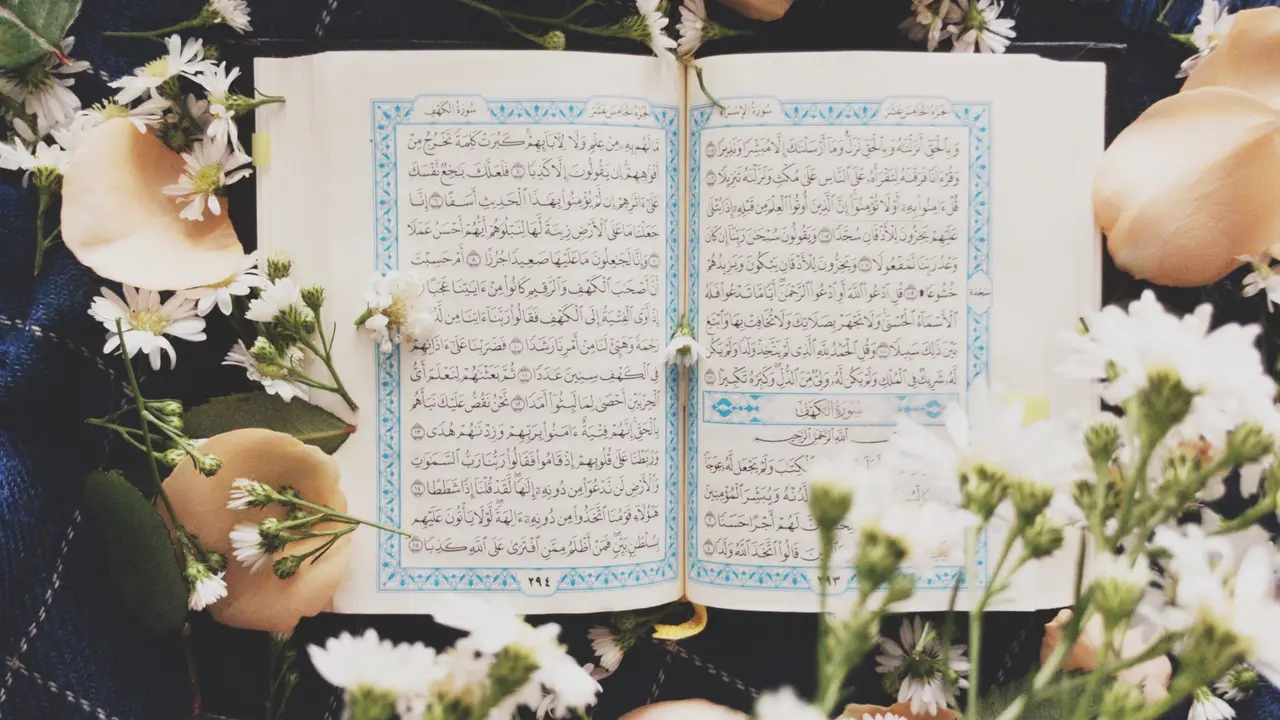 الجزء الخامس عشر سورة الإسراء
وَبِٱلْحَقِّ أَنزَلْنَٰهُ وَبِٱلْحَقِّ نَزَلَ وَمَآ أَرْسَلْنَٰكَ إِلَّا مُبَشِّرًا وَنَذِيرًا ١٠٥
وَقُرْءَانًا فَرَقْنَٰهُ لِتَقْرَأَهُۥ عَلَى ٱلنَّاسِ عَلَىٰ مُكْثٍ وَنَزَّلْنَٰهُ تَنزِيلًا ١٠٦
قُلْ ءَامِنُوا۟ بِهِۦٓ أَوْ لَا تُؤْمِنُوٓا۟ إِنَّ ٱلَّذِينَ أُوتُوا۟ ٱلْعِلْمَ مِن قَبْلِهِۦٓ إِذَا يُتْلَىٰ
عَلَيْهِمْ يَخِرُّونَ لِلْأَذْقَانِ سُجَّدًا ١٠٧ وَيَقُولُونَ سُبْحَٰنَ رَبِّنَآ إِن كَانَ
وَعْدُ رَبِّنَا لَمَفْعُولًا ١٠٨ وَيَخِرُّونَ لِلْأَذْقَانِ يَبْكُونَ وَيَزِيدُهُمْ
خُشُوعًا ۩ ١٠٩ قُلِ ٱدْعُوا۟ ٱللَّهَ أَوِ ٱدْعُوا۟ ٱلرَّحْمَٰنَ أَيًّا مَّا تَدْعُوا۟ فَلَهُ
سجدة
ٱلْأَسْمَآءُ ٱلْحُسْنَىٰ وَلَا تَجْهَرْ بِصَلَاتِكَ وَلَا تُخَافِتْ بِهَا وَٱبْتَغِ
بَيْنَ ذَٰلِكَ سَبِيلًا ١١٠ وَقُلِ ٱلْحَمْدُ لِلَّهِ ٱلَّذِى لَمْ يَتَّخِذْ وَلَدًا وَلَمْ يَكُن
لَّهُۥ شَرِيكٌ فِى ٱلْمُلْكِ وَلَمْ يَكُن لَّهُۥ وَلِىٌّ مِّنَ ٱلذُّلِّ وَكَبِّرْهُ تَكْبِيرًۢا ١١١
سورة الكهف
ٱللَّهِ ٱلرَّحْمَٰنِ ٱلرَّحِيمِ
ٱلْكِتَٰبَ وَلَمْ يَجْعَل لَّهُۥ عِوَجَا
وَيُبَشِّرَ ٱلْمُؤْمِنِينَ
لَهُمْ أَجْرًا حَسَنًا ٢
قَالُوا۟ ٱتَّخَذَ ٱللَّهُ وَلَدًا ٤
٢٩٣
الجزء الخامس عشر سورة الكهف
مَّا لَهُم بِهِۦ مِنْ عِلْمٍ وَلَا لِءَابَآئِهِمْ كَبُرَتْ كَلِمَةً تَخْرُجُ مِنْ
أَفْوَٰهِهِمْ إِن يَقُولُونَ إِلَّا كَذِبًا ٥ فَلَعَلَّكَ بَٰخِعٌ نَّفْسَكَ
عَلَىٰٓ ءَاثَٰرِهِمْ إِن لَّمْ يُؤْمِنُوا۟ بِهَٰذَا ٱلْحَدِيثِ أَسَفًا ٦ إِنَّا
جَعَلْنَا مَا عَلَى ٱلْأَرْضِ زِينَةً لَّهَا لِنَبْلُوَهُمْ أَيُّهُمْ أَحْسَنُ عَمَلًا
٧ وَإِنَّا لَجَٰعِلُونَ مَا عَلَيْهَا صَعِيدًا جُرُزًا ٨ أَمْ حَسِبْتَ
أَنَّ أَصْحَٰبَ ٱلْكَهْفِ وَٱلرَّقِيمِ كَانُوا۟ مِنْ ءَايَٰتِنَا عَجَبًا
إِذْ أَوَى ٱلْفِتْيَةُ إِلَى ٱلْكَهْفِ فَقَالُوا۟ رَبَّنَآ ءَاتِنَا مِن
رَحْمَةً وَهَيِّئْ لَنَا مِنْ أَمْرِنَا رَشَدًا ١٠ فَضَرَبْنَا عَلَىٰٓ ءَاذَانِهِمْ
فِى ٱلْكَهْفِ سِنِينَ عَدَدًا ١١ ثُمَّ بَعَثْنَٰهُمْ لِنَعْلَمَ أَىُّ
ٱلْحِزْبَيْنِ أَحْصَىٰ لِمَا لَبِثُوٓا۟ أَمَدًا ١٢ نَّحْنُ نَقُصُّ عَلَيْكَ نَبَأَهُم
بِٱلْحَقِّ إِنَّهُمْ فِتْيَةٌ ءَامَنُوا۟ بِرَبِّهِمْ وَزِدْنَٰهُمْ هُدًى ١٣
وَرَبَطْنَا عَلَىٰ قُلُوبِهِمْ إِذْ قَامُوا۟ فَقَالُوا۟ رَبُّنَا رَبُّ ٱلسَّمَٰوَٰتِ
وَٱلْأَرْضِ لَن نَّدْعُوَا۟ مِن دُونِهِۦٓ إِلَٰهًا لَّقَدْ قُلْنَآ إِذًا شَطَطًا ١٤
هَٰٓؤُلَآءِ قَوْمُنَا ٱتَّخَذُوا۟ مِن دُونِهِۦٓ ءَالِهَةً لَّوْلَا يَأْتُونَ عَلَيْهِم
بِسُلْطَٰنٍۭ بَيِّنٍ فَمَنْ أَظْلَمُ مِمَّنِ ٱفْتَرَىٰ عَلَى ٱللَّهِ كَذِبًا ١٥
٢٩٤